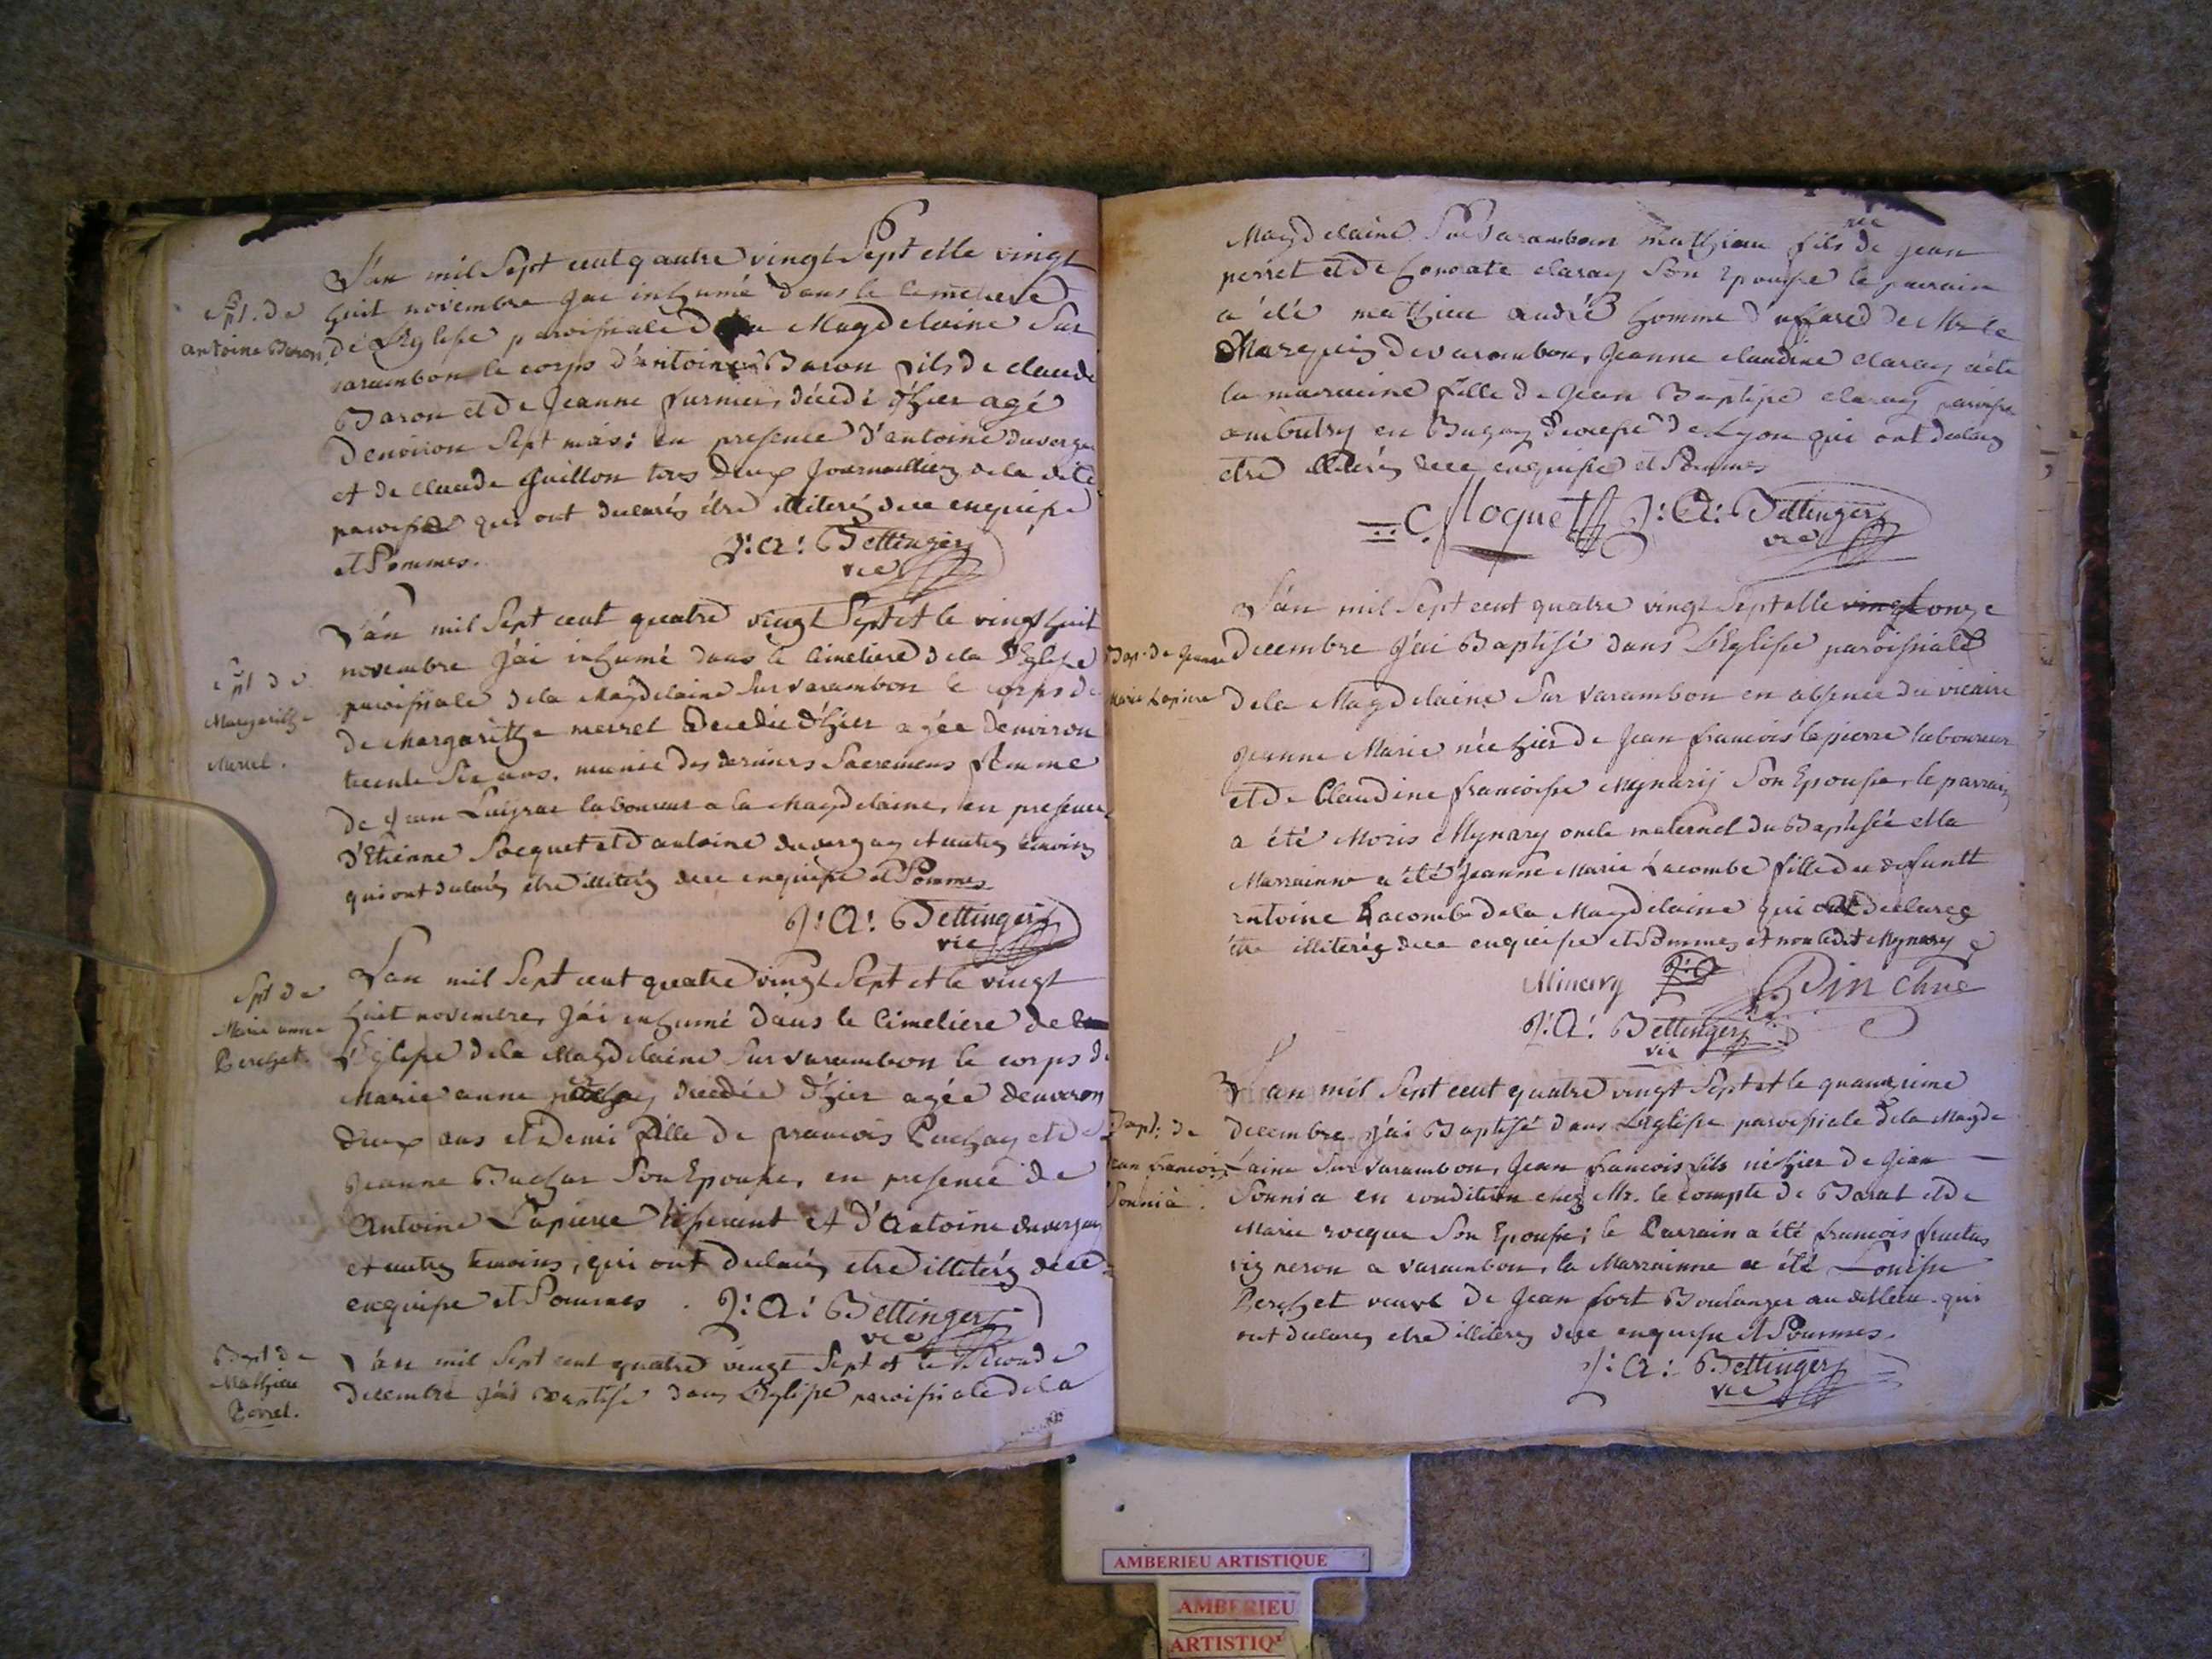 Spt. de
antoine Baron
L'an mil Sept cent quatre vingt Sept et le vingt
huit novembre jai inhumé dans le cimetiere
de L'Eglise paroissiale de la Magdelaine Sur
varambon le corps d'antoine Baron fils de claude
Baron et de Jeanne furmier, décédé d'hier agé
denviron Sept mois; en presence d'antoine duvergey
et de claude Guillon tous deux Journalliers de la dite
paroisse qui ont declarés être illiterés de ce enquise
et Sommes.
J: A: Bettinger
vic
Spt de
Margarithe
Merrel.
L'an mil Sept cent quatre vingt Sept et le vingt huit
novembre j'ai inhumé dans le Cimetiere de la L'Eglise
paroissiale de la Magdelaine Sur varambon le corps de
de Margarithe merrel decedée d'hier agée denviron
trente Six ans, munie des derniers Sacremens femme
de Jean laboureur a la Magdelaine, en presence
d'Etienne Socquet et d'antoine duvergey et autres témoins
qui ont declarés etre illiterés de ce enquise et Sommes
J: A: Bettinger
vic
Spt de
Marie anne
Perchet.
L'an mil Sept cent quatre vingt Sept et le vingt
huit novembre, j'ai inhumé dans le Cimetiere de
L'Eglise de la Magdelaine Sur varambon le corps de
Marie anne decedée d'hier agée denviron
deux ans et Demi fille de francois et de
Jeanne Buchar Son Epouse, en presence de
Antoine Lapierre tisserant et d'Antoine duvergey
et autres temoins, qui ont declarés etre illiterés de ce
enquise et Sommes. J: A: Bettinger
vic
Bapt de
Mathieu
Perret.
L'an mil Sept cent quatre vingt Sept et le Seconde
decembre j'ai Baptisé dans L'Eglise paroissiale de la
Magdelaine Sur varambon mathieu fils né de jean
perret et de claray Son Epouse le parain
a été mathieu andré homme d'affaires de Mr le
Marquis de varambon, Jeanne claudine claray a été
la maraine fille de jean Baptiste claray paroisse
ambutry en Bugey Diocese de Lyon qui ont declarés
etre illiterés de ce enquise et Sommes
C. Floquet J: A: Bettinger
vic
Bap. de Jeanne
Marie Lapierre
L'an mil Sept cent quatre vingt Sept et le vingt onze
decembre j'ai Baptisé dans L'Eglise paroissiale
de la Magdelaine Sur varambon en absence du vicaire
jeanne Marie née hier de jean francois lapierre laboureur
et de Claudine francoise Mynarij Son Epouse, le parrain
a été Moris Mynary oncle maternel du Baptisée et la
Marrainne a été Jeanne Marie Lacombe fille du defuntt
antoine Lacombe de la Magdelaine qui ont declarés
être illiterés de ce enquise et Sommes et non ledit Mynary
Minary
J: A: Bettinger
vic
Bapt: de
Jean francois
Sonnia.
L'an mil Sept cent quatre vingt Sept et le
decembre j'ai Baptisé dans L'Eglise paroissiale de la Magde
Laine Sur varambon, Jean francois fils né hier de Jean
Sonnia en condition chez Mr. le compte de Barat et de
Marie rocque Son Epouse; le Parrain a été francois fructus
vigneron a varambon, la Marrainne a été Louise
Perchet veuve de Jean fort Boulanger audit lieu qui
ont declarés etre illiterés de ce enquise et Sommes.
J: A: Bettinger
vic
AMBERIEU ARTISTIQUE
AMBERIEU
ARTISTIQ